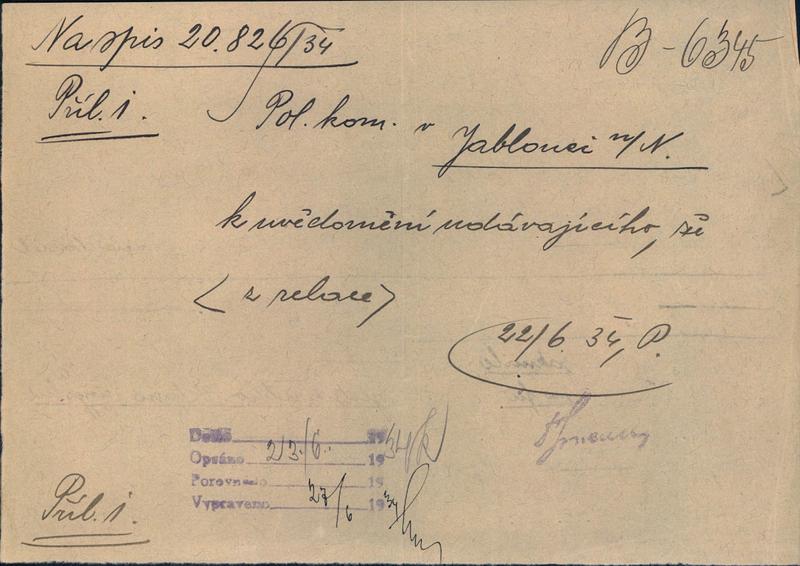 Na spis 20.826/34
B-6345
Příl. 1.
Pol. kom. v Jablonci n/N.
k uvědomění udávajícího, že
(z relace)
22/6 34, P.
Došlo 19
Opsáno 23./6. 1934
Porovnáno 19
Vypraveno 27/6 1934
Příl. 1.